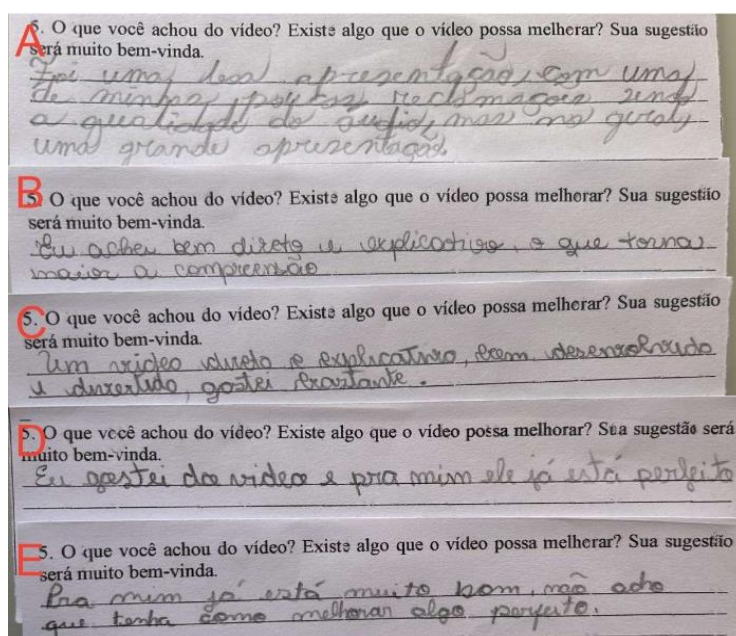 A
5. O que você achou do vídeo? Existe algo que o vídeo possa melhorar? Sua sugestão
será muito bem-vinda.
Foi uma boa apresentação, com uma
de minhas poucas reclamações sendo
a qualidade do áudio, mas no geral,
uma grande apresentação.
B
5. O que você achou do vídeo? Existe algo que o vídeo possa melhorar? Sua sugestão
será muito bem-vinda.
Eu achei bem direto e explicativo, o que torna
maior a compreensão
C
5. O que você achou do vídeo? Existe algo que o vídeo possa melhorar? Sua sugestão
será muito bem-vinda.
Um video direto e explicativo, bem desenvolvido
e divertido, gostei bastante.
D
5. O que você achou do vídeo? Existe algo que o vídeo possa melhorar? Sua sugestão será
muito bem-vinda.
Eu gostei do video e pra mim ele já está perfeito
E
5. O que você achou do vídeo? Existe algo que o vídeo possa melhorar? Sua sugestão
será muito bem-vinda.
Pra mim já está muito bom, não acho
que tenha como melhorar algo perfeito.